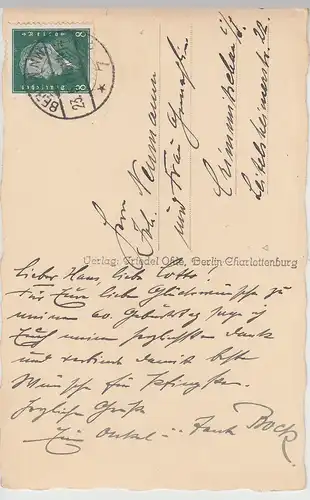 8 8
Deutsches
BERLIN
23.
Herrn
Joh. Neumann
und Frau Gemahlin
Crimmitschau i/S
Leitelshainerstr. 22.
Verlag: Friedel Ohle, Berlin-Charlottenburg
Lieber Hans, liebe Lotte!
Für Eure lieben Glückwünsche zu
meinem 60. Geburtstag sage ich
Euch meinen herzlichsten Dank
und verbinde damit beste
Wünsche für Pfingsten.
Herzliche Grüße
Euer Onkel u. Tante Bock